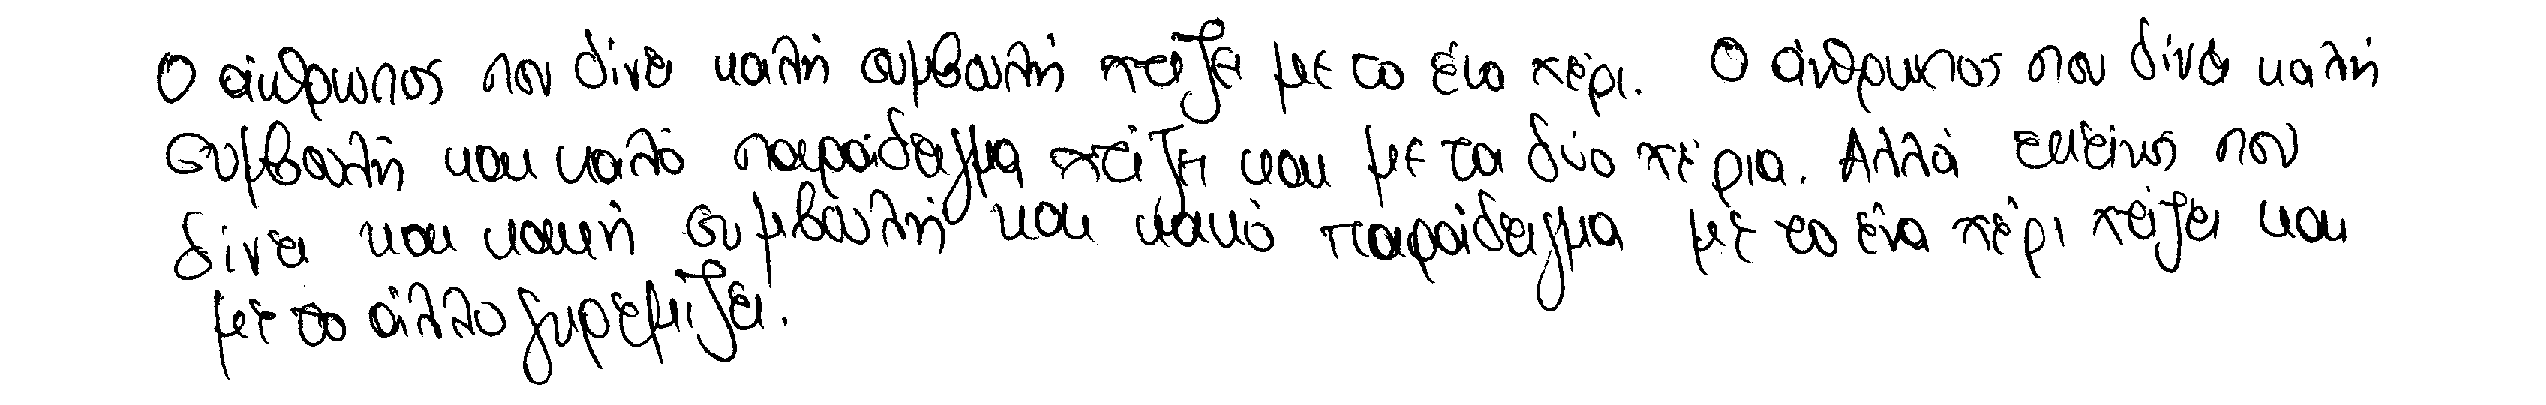 Ο άνθρωπος που δίνει καλή συμβουλή χτίζει με το ένα χέρι. Ο άνθρωπος που δίνει καλή
συμβουλή και καλό παράδειγμα χτίζει και με τα δύο χέρια. Αλλά εκείνος που
δίνει και κακή συμβουλή και κακό παράδειγμα με το ένα χέρι χτίζει και
με το άλλο γκρεμίζει.